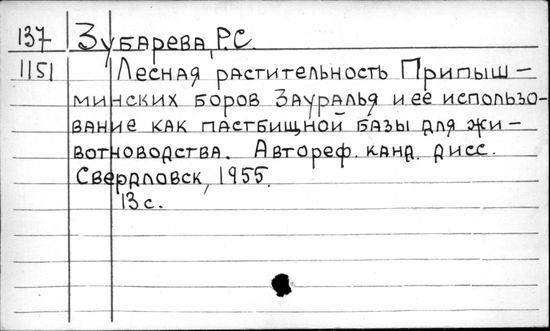 137 Зубарева, Р.С.
1151 Лесная растительность Припыш-
минских боров Зауралья и её использо-
вание как пастбищной базы для жи-
вотноводства. Автореф. канд. дисс.
Свердловск, 1955.
13 с.